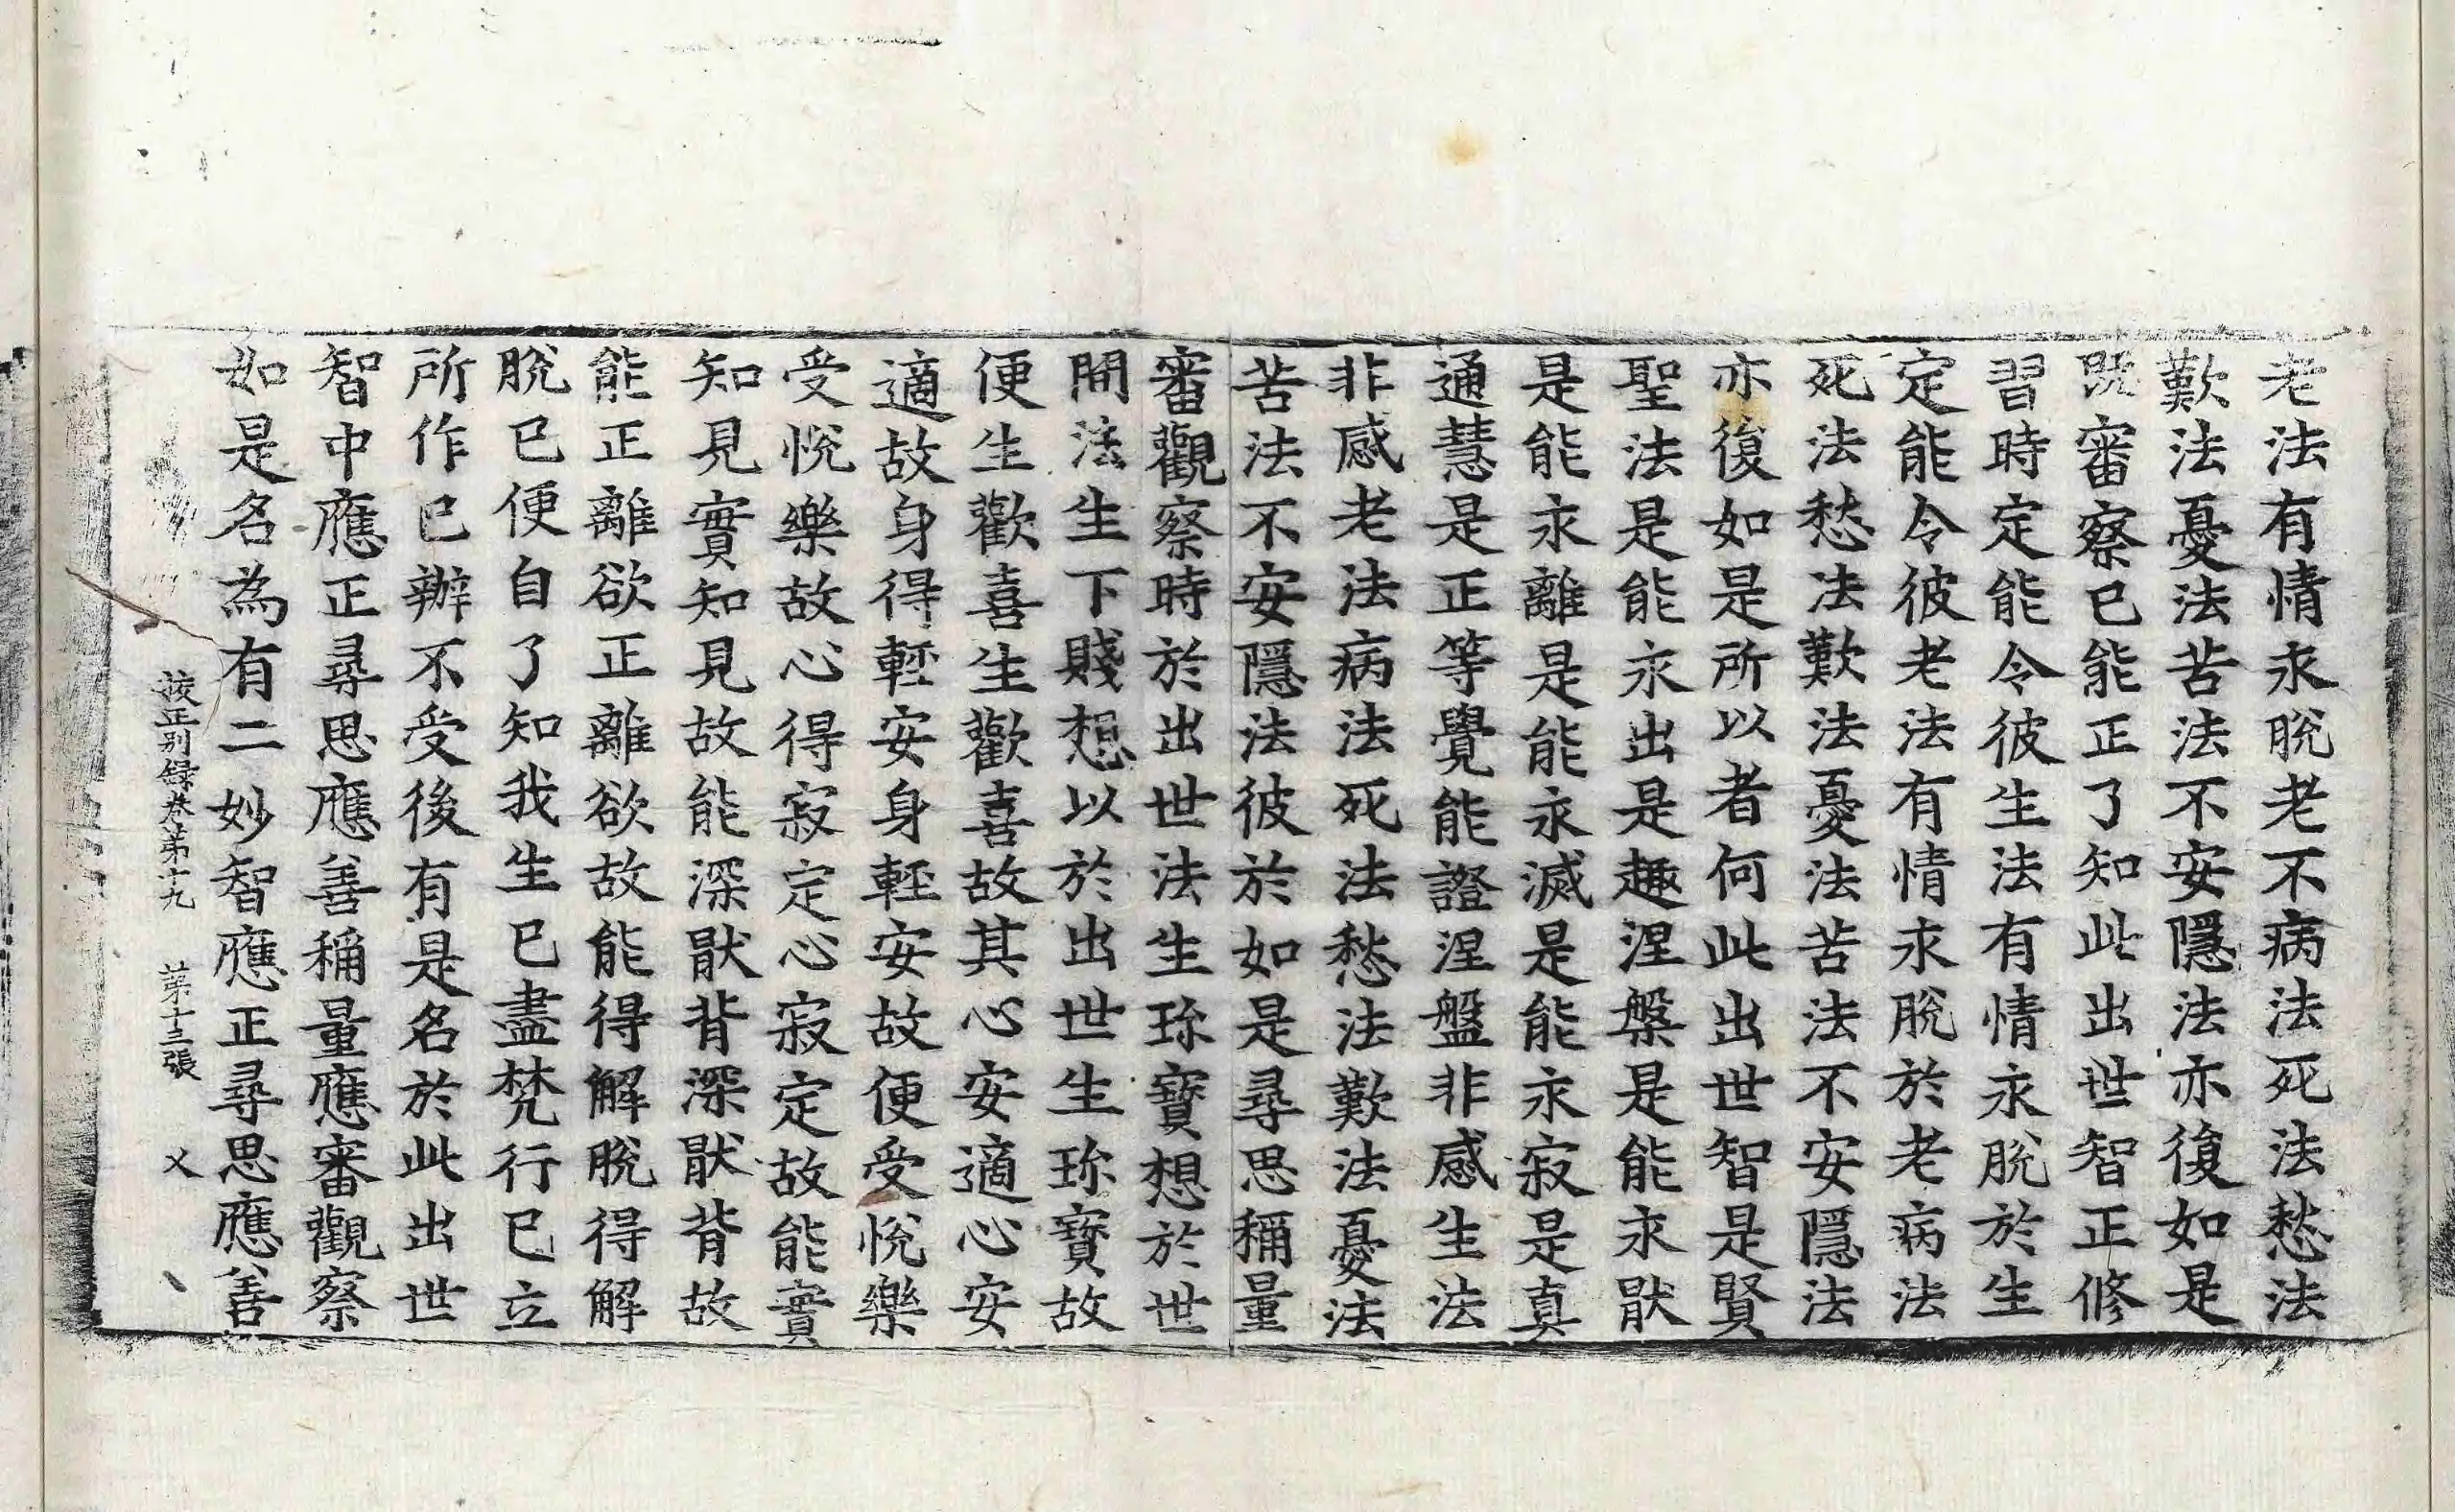 老法有情永脫老不病法死法愁法
歎法憂法苦法不安隱法亦復如是
既審察已能正了知此出世智正修
習時定能令彼生法有情永脫於生
定能令彼老法有情求脫於老病法
死法愁法歎法憂法苦法不安隱法
亦復如是所以者何此出世智是賢
聖法是能永出是趣涅槃是能永猒
是能永離是能永滅是能永寂是真
通慧是正等覺能證涅盤非感生法
非感老法病法死法愁法歎法憂法
苦法不安隱法彼於如是尋思稱量
審觀察時於出世法生珎寶想於世
間法生下賤想以於出世生珎寶故
便生歡喜生歡喜故其心安適心安
適故身得輕安身輕安故便受悅樂
受悅樂故心得寂定心寂定故能實
知見實知見故能深猒背深猒背故
能正離欲正離欲故能得解脫得解
脫已便自了知我生已盡梵行已立
所作已辦不受後有是名於此出世
智中應正尋思應善稱量應審觀察
如是名為有二妙智應正尋思應善
挍正別録卷苐十九 苐十三張